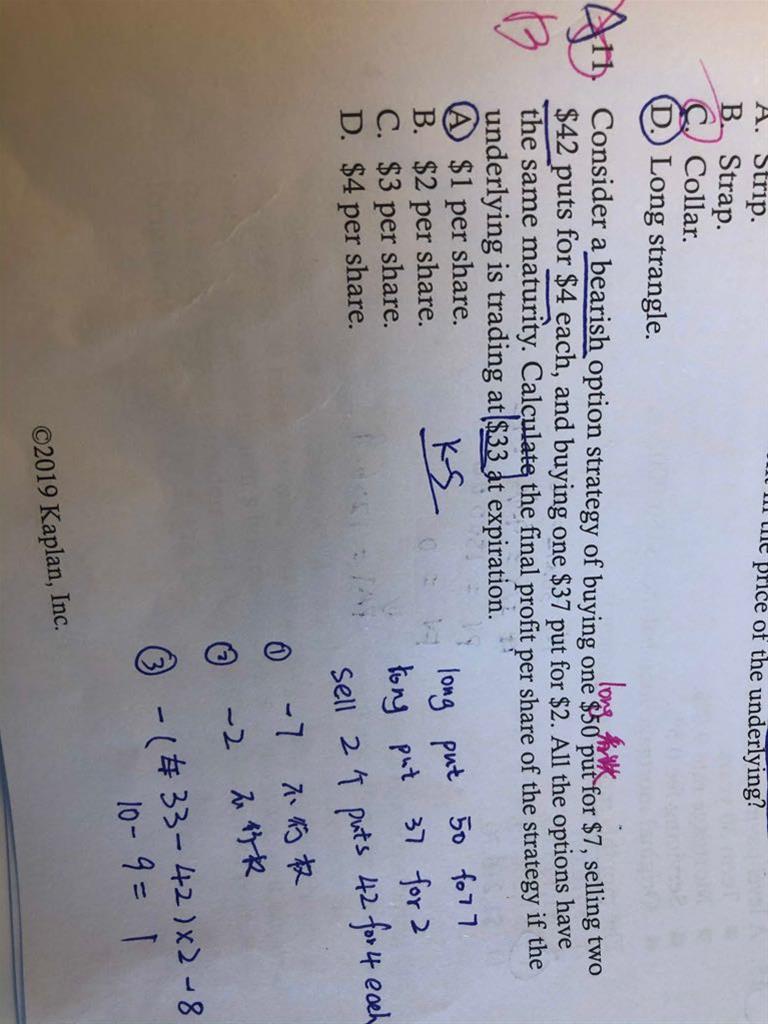 A. Strip.
B. Strap.
C. Collar.
D. Long strangle.
in the price of the underlying?
A
B
11. Consider a bearish option strategy of buying one $50 put for $7, selling two
$42 puts for $4 each, and buying one $37 put for $2. All the options have
the same maturity. Calculate the final profit per share of the strategy if the
underlying is trading at $33 at expiration.
A. $1 per share.
B. $2 per share.
C. $3 per share.
D. $4 per share.
long
K-S
long put 50 for 7
long put 37 for 2
sell 2个 puts 42 for 4 each
① -7 不行权
② -2 不行权
③ -(33-42)x2-8
10-9=1
©2019 Kaplan, Inc.